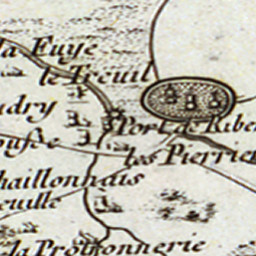 la Fuye
le Treuil
udry
Port de Ribe
ousse
les Pierrie
haillonnais
euille
la Prothonnerie